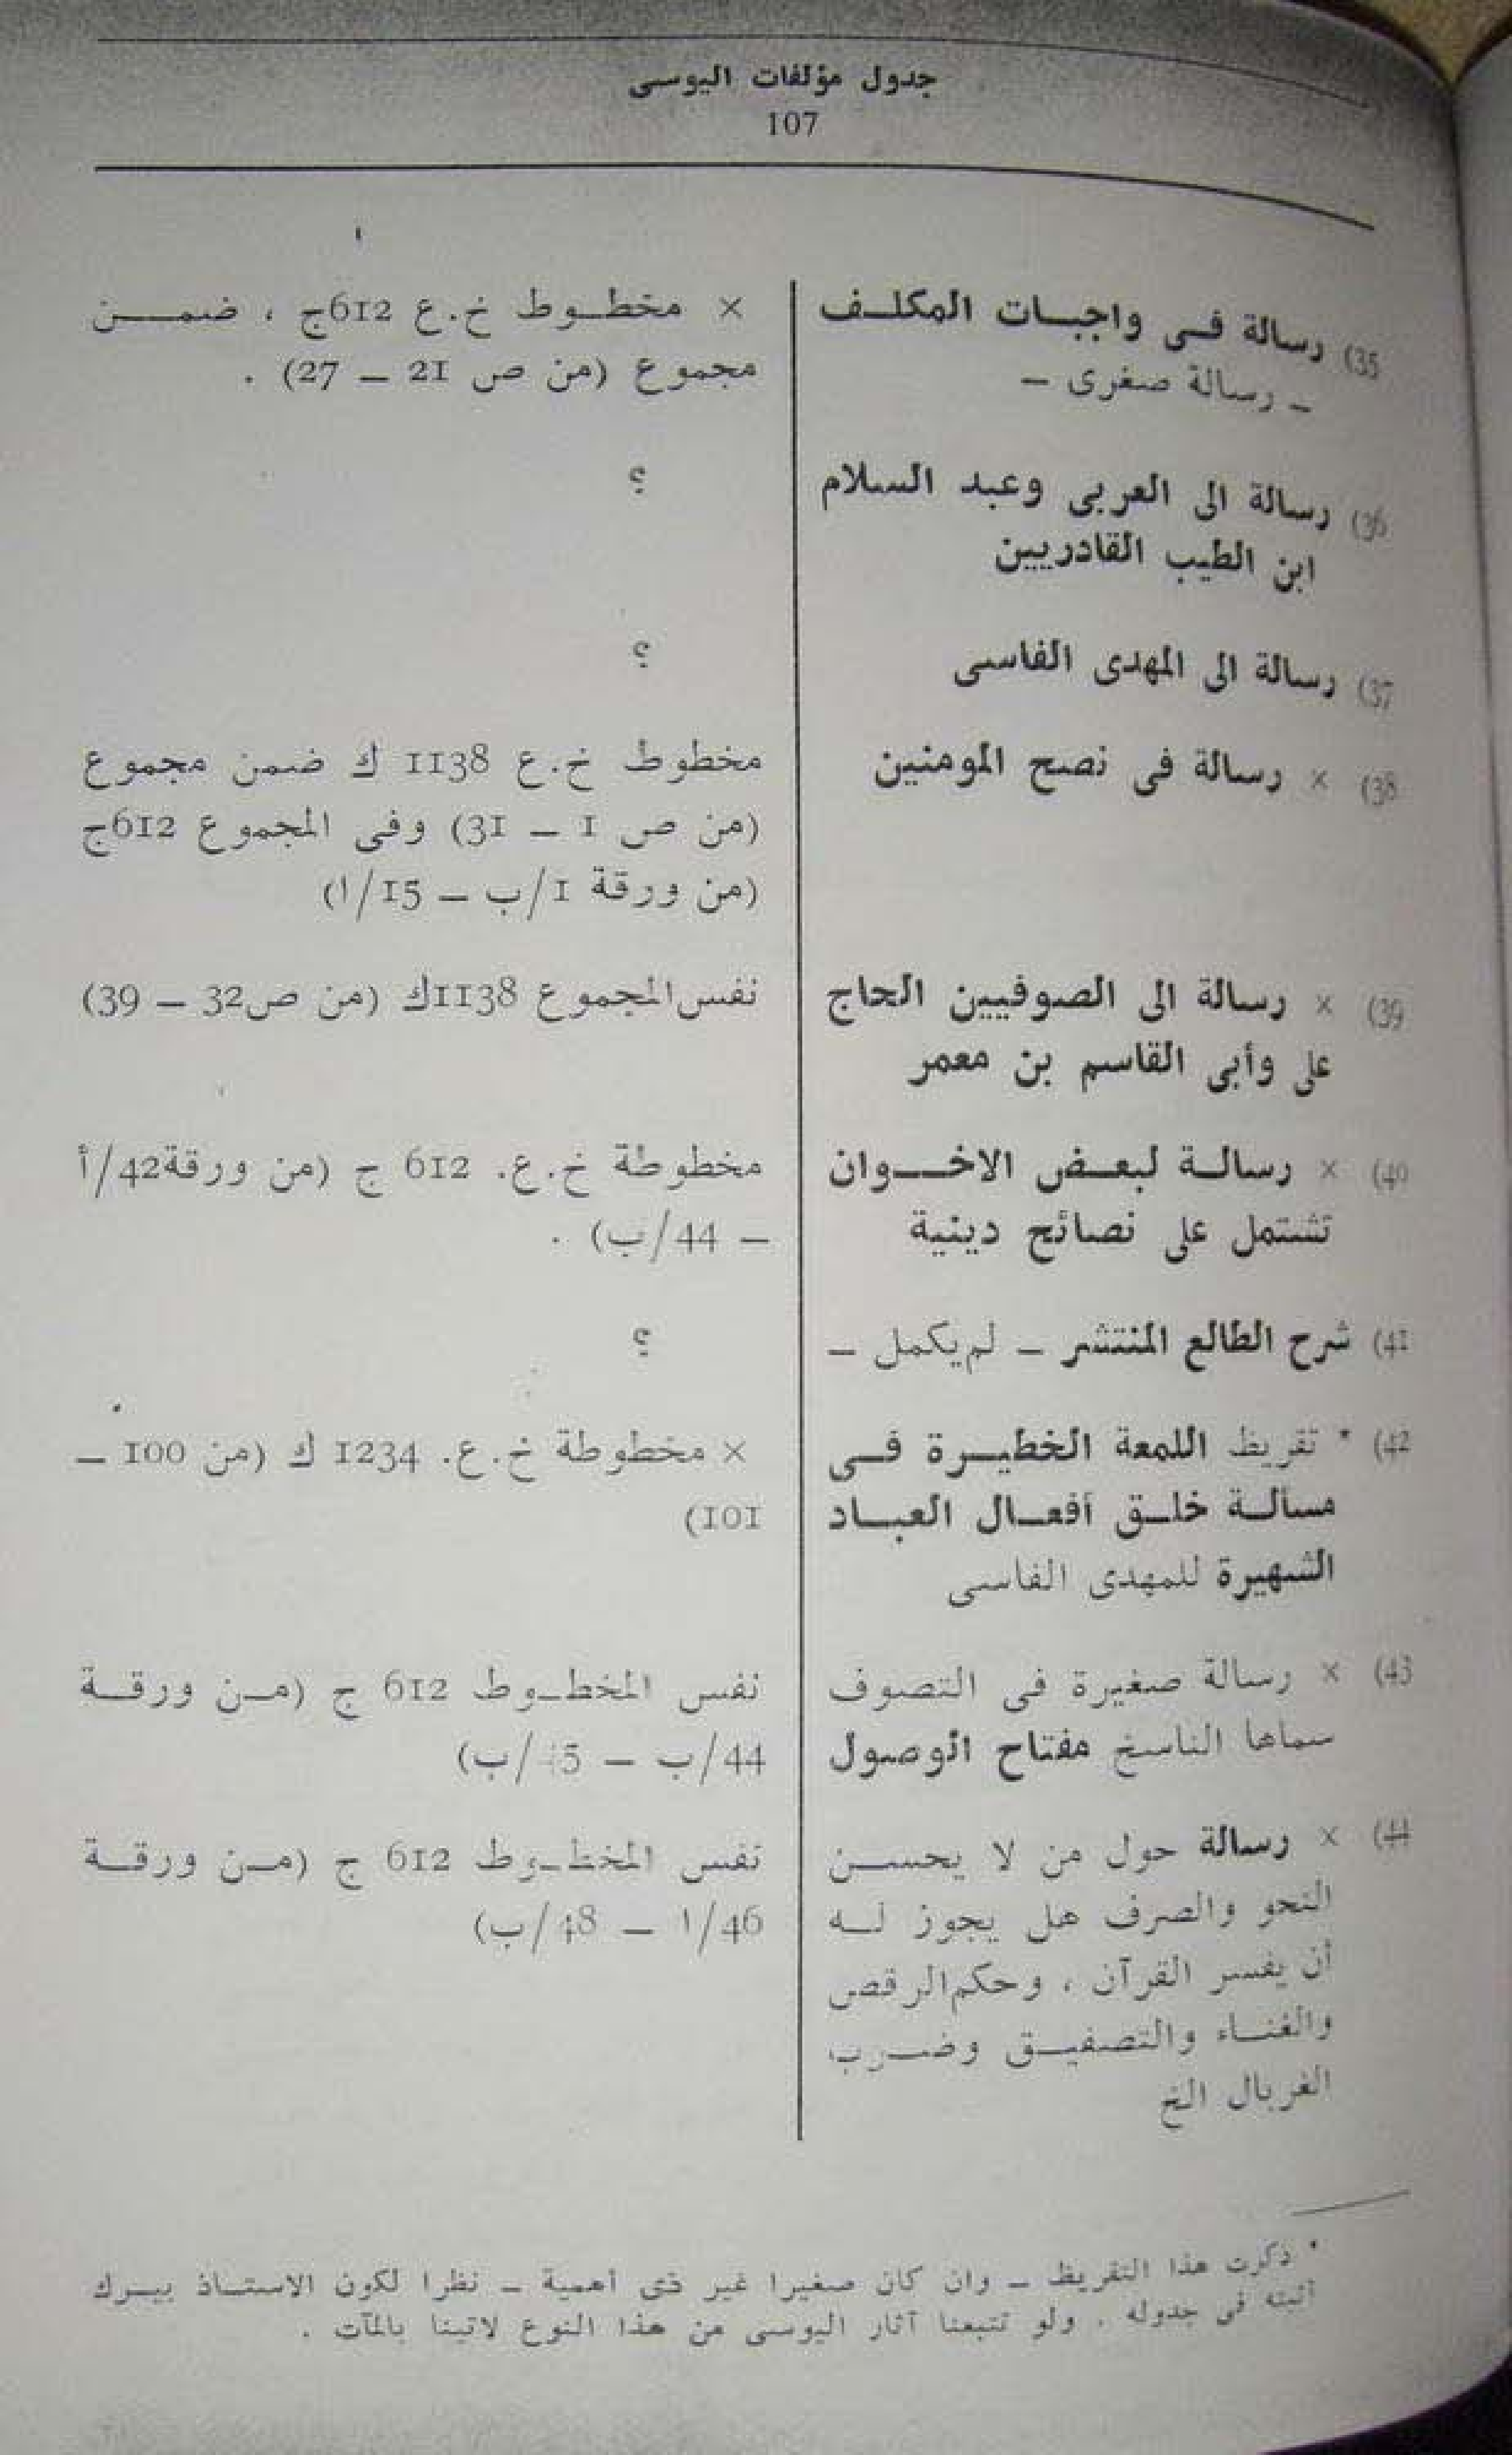 جدول مؤلفات اليوسى
107
35) رسالة فـى واجبـات المكلـف
ـ رسالة صغرى ـ
× مخطـوط خ.ع 612ج ، ضمـــن
مجموع (من ص 21 ـ 27) .
36) رسالة الى العربى وعبد السلام
ابن الطيب القادريين
؟
37) رسالة الى المهدى الفاسى
؟
38) × رسالة فى نصح المومنين
مخطوط خ.ع 1138 ك ضمن مجموع
(من ص 1 ـ 31) وفى المجموع 612ج
(من ورقة 1/ب ـ 15/ا)
39) × رسالة الى الصوفيين الحاج
على وأبى القاسم بن معمر
نفس المجموع 1138ك (من ص32 ـ 39)
40) × رسالـة لبعـض الاخـــوان
تشتمل على نصائح دينية
مخطوطة خ.ع. 612 ج (من ورقة42/أ
ـ 44/ب) .
41) شرح الطالع المنتشر ـ لم يكمل ـ
؟
42) * تقريظ اللمعة الخطيـرة فـى
مسألـة خلـق أفعـال العبـاد
الشهيرة للمهدى الفاسى
× مخطوطة خ.ع. 1234 ك (من 100 ـ
101)
43) × رسالة صغيرة فى التصوف
سماها الناسخ مفتاح الوصول
نفس المخطـوط 612 ج (مـن ورقـة
44/ب ـ 45/ب)
44) × رسالة حول من لا يحســن
النحو والصرف هل يجوز لـه
أن يفسر القرآن ، وحكم الرقص
والغنـاء والتصفيـق وضـرب
الغربال الخ
نفس المخطـوط 612 ج (مـن ورقـة
46/ا ـ 48/ب)
* ذكرت هذا التقريظ ـ وان كان صغيرا غير ذى أهمية ـ نظرا لكون الاستـاذ بيـرك
أثبته فى جدوله . ولو تتبعنا آثار اليوسى من هذا النوع لاتينا بالمآت .